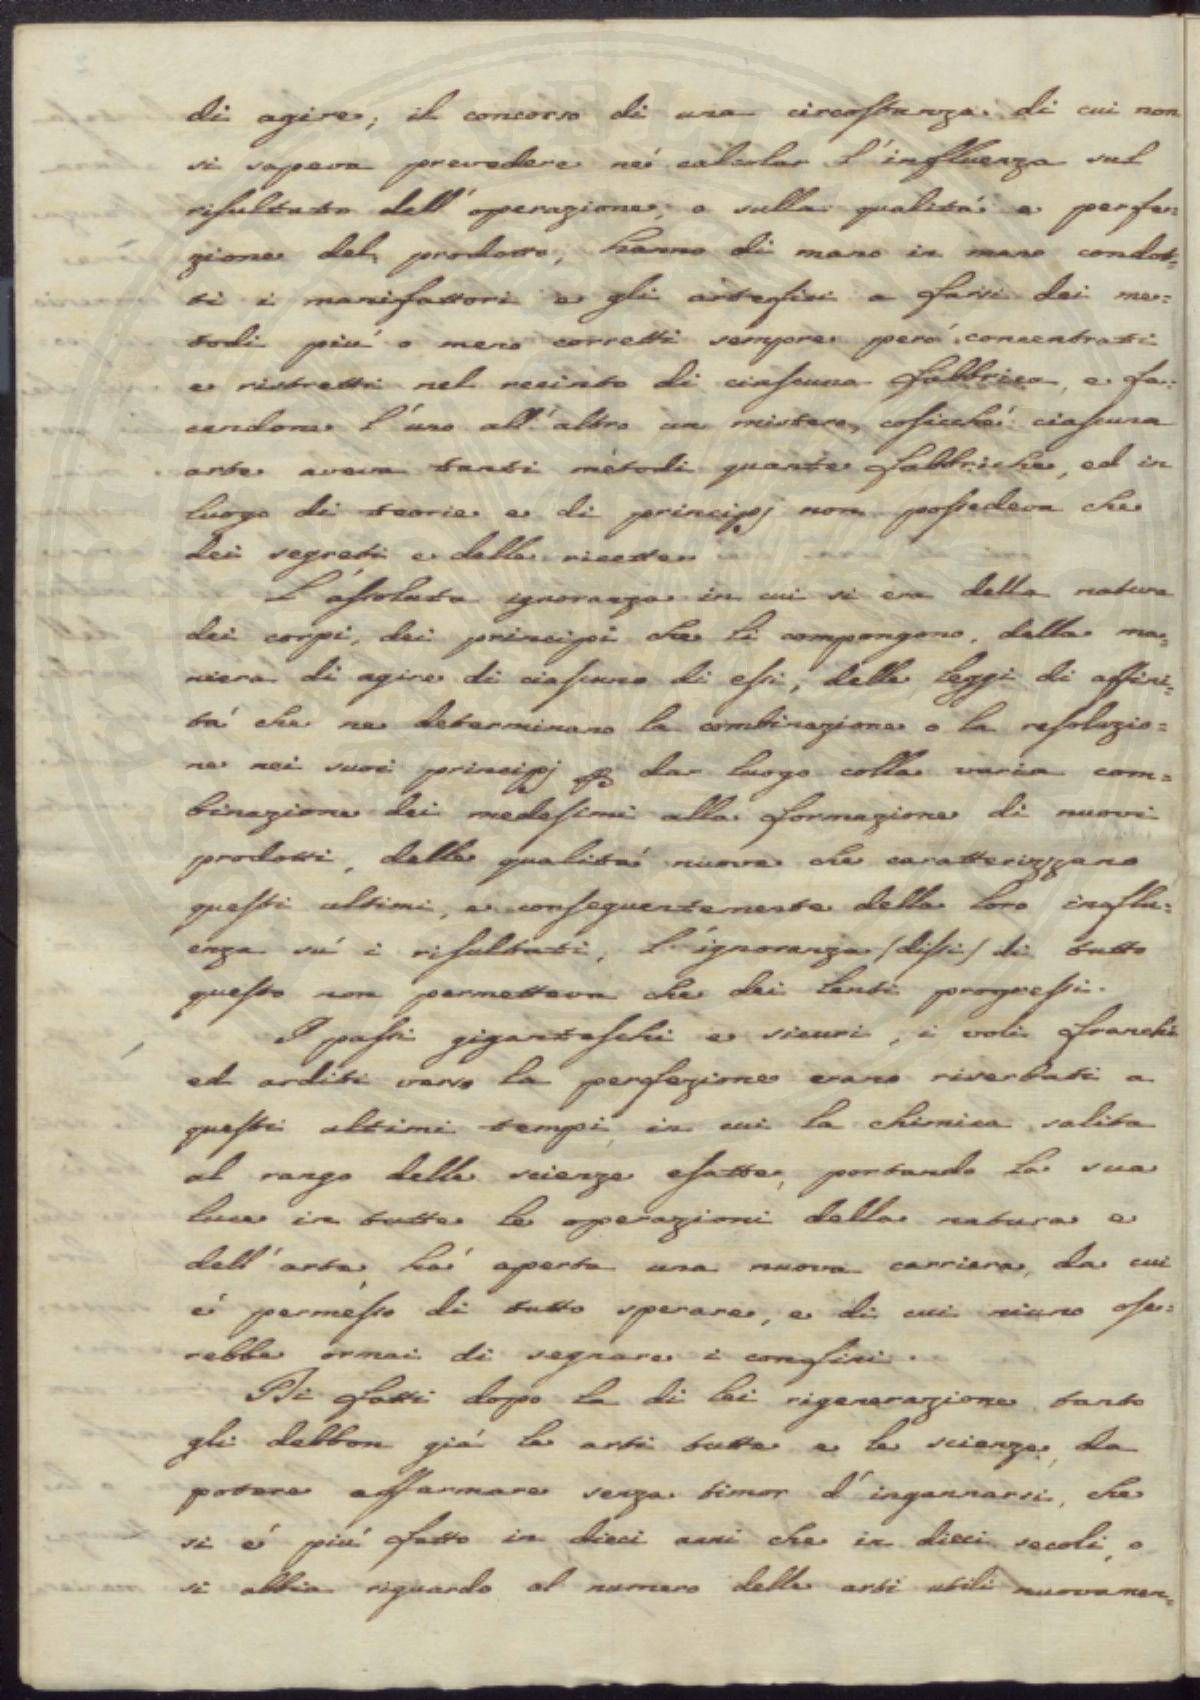 di agire, il concorso di una circostanza di cui non
si sapeva prevedere né calcolar l'influenza sul
risultato dell'operazione, o sulla qualità e perfe=
zione del prodotto, hanno di mano in mano condot=
ti i manifattori e gli artefici a farsi dei me=
todi più o meno corretti sempre però concentrati
e ristretti nel recinto di ciascuna fabbrica, e fa=
cendone l'uno all'altro un mistero, cosicché ciascuna
arte aveva tanti metodi quante fabbriche, ed in
luogo di teorie e di principj non possedeva che
dei segreti e delle ricette.
L'assoluta ignoranza in cui si era della natura
dei corpi, dei principi che li compongono, della ma=
niera di agire di ciascuno di essi, delle leggi di affini=
tà che ne determinano la combinazione o la resoluzio=
ne nei suoi principj p dar luogo colla varia com=
binazione dei medesimi alla formazione di nuovi
prodotti, delle qualità nuove che caratterizzano
questi ultimi, e conseguentemente della loro influ=
enza sù i risultati, l'ignoranza (dissi) di tutto
questo non permetteva che dei lenti progressi.
I passi giganteschi e sicuri, i voli franchi
ed arditi verso la perfezione erano riserbati a
questi ultimi tempi, in cui la chimica salita
al rango delle scienze esatte, portando la sua
luce in tutte le operazioni della natura e
dell'arte, hà aperta una nuova carriera, da cui
è permesso di tutto sperare, e di cui niuno ose=
rebbe ormai di segnare i confini.
Di fatti dopo la di lei rigenerazione tanto
gli debbon già le arti tutte e le scienze, da
potere affermare senza timor d'ingannarsi, che
si è più fatto in dieci anni che in dieci secoli, o
si abbia riguardo al numero delle arti utili nuovamen=